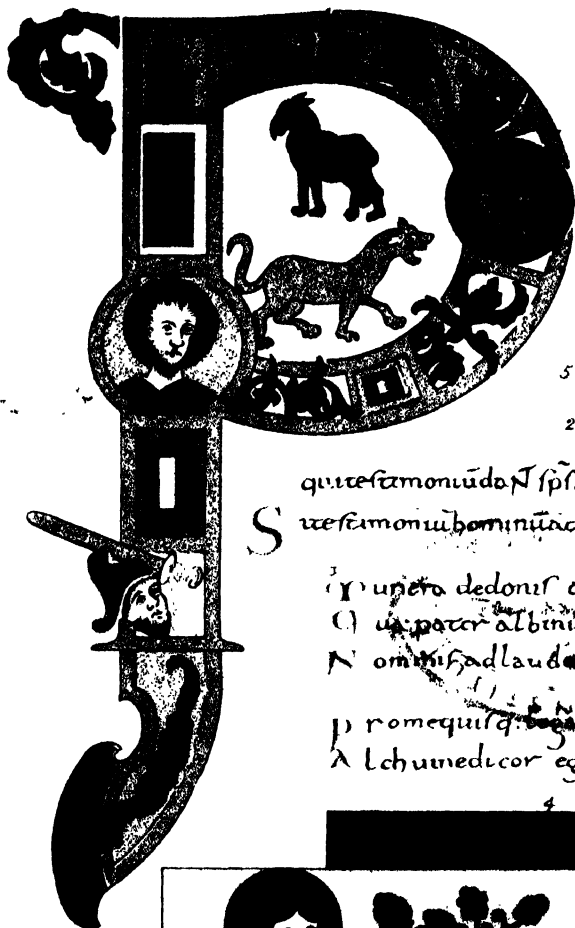 P
5
2
quitestimoniūdaN sp̄s
S itestimoniūhominūac
3
dedonis
Q ua pater albini
N ominis adlaude
p romequisq.
A lchuinedicor eg
4